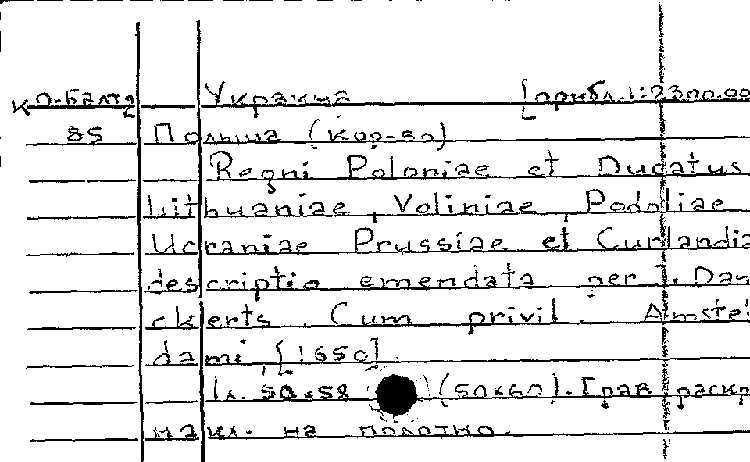 Ко-Балт2 Украина [прибл. 1:2300.00
85 Польша (кор-во)
Regni Poloniae et Ducatus
Lithuaniae, Voliniae, Podoliae
Ucraniae Prussiae et Curlandia
descriptio emendata per I. Dan
ckerts. Cum privil. Amstel
dami, [1650]
1 л. 50×58 (50×60). Грав. раскр
накл. на полотно.